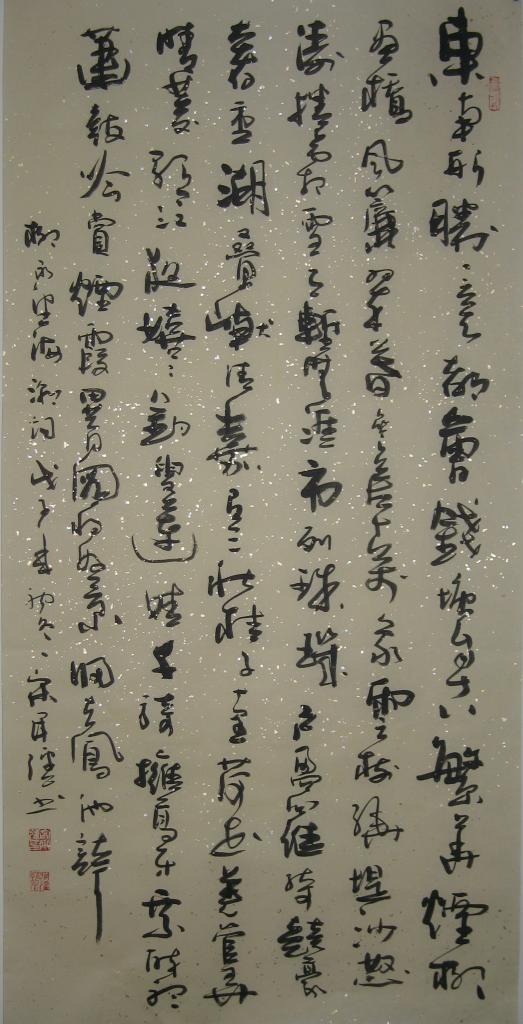 東南形勝三吳都會錢塘自古繁華煙柳
畫橋風簾翠幕參差十萬人家雲樹繞堤沙怒
濤捲霜雪天塹無涯市列珠璣戶盈羅綺競豪
奢重湖疊巘清嘉有三秋桂子十里荷花羌管弄
晴菱歌泛夜嬉嬉釣叟蓮娃千騎擁高牙乘醉聽
簫鼓吟賞煙霞異日圖將好景歸去鳳池誇
柳永望海潮詞戊子春宋書